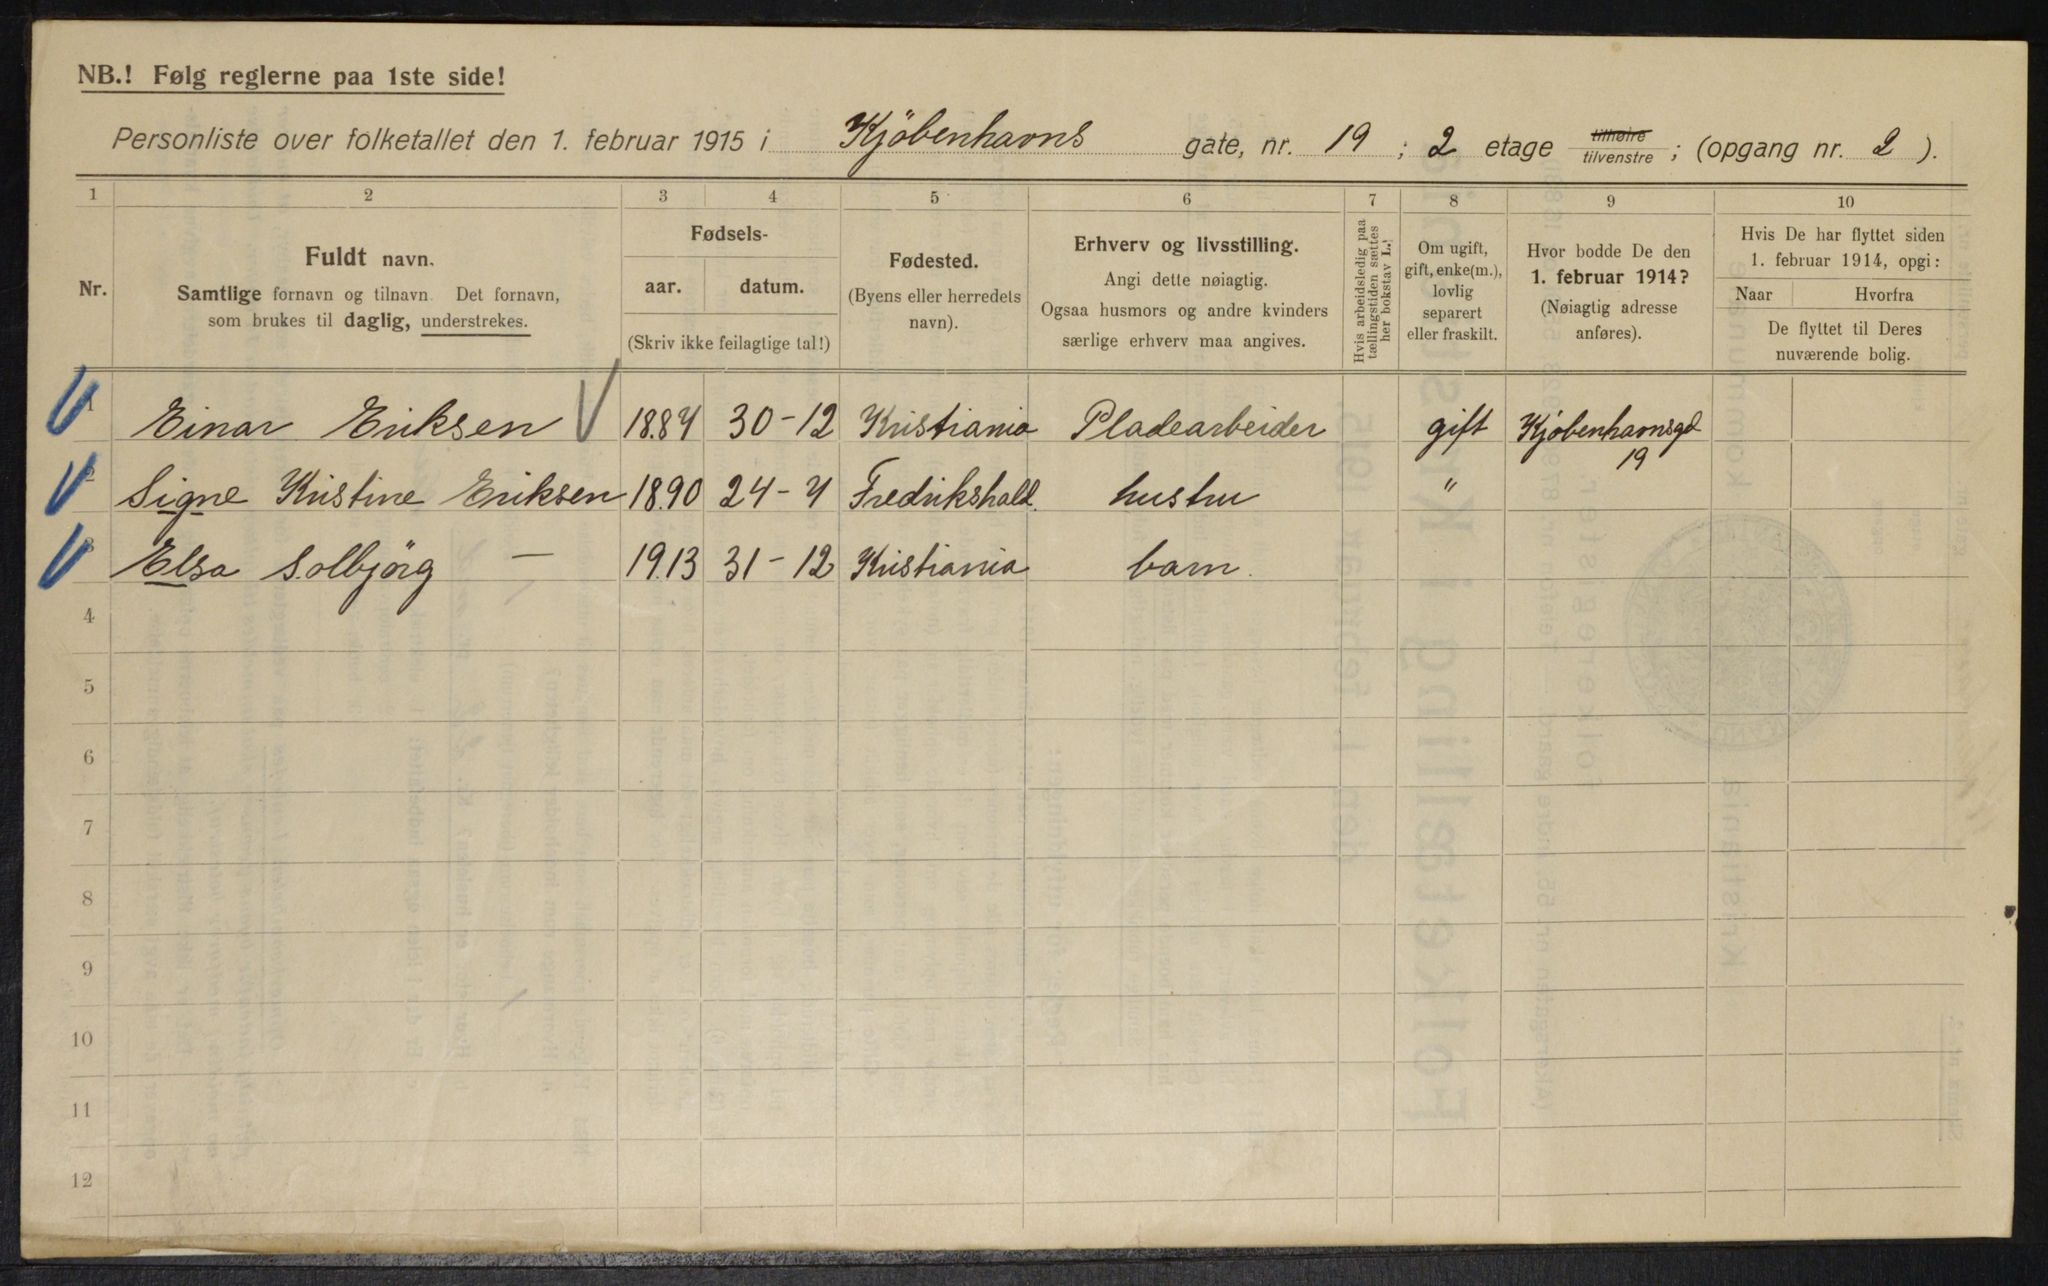 NB.! Følg reglerne paa 1ste side!
Personliste over folketallet den 1. februar 1915 i Kjöbenhavns gate, nr. 19 ; 2 etage tilhøire tilvenstre ; (opgang nr. 2 ).
1 2 3 4 5 6 7 8 9 10
Nr.
Fuldt navn.
Samtlige fornavn og tilnavn. Det fornavn,
som brukes til daglig, understrekes.
Fødsels-
aar. datum.
(Skriv ikke feilagtige tal!)
Fødested.
(Byens eller herredets
navn).
Erhverv og livsstilling.
Angi dette nøiagtig.
Ogsaa husmors og andre kvinders
særlige erhverv maa angives.
Hvis arbeidsledig paa
tællingstiden sættes
her bokstav L.
Om ugift,
gift, enke(m.),
lovlig
separert
eller fraskilt.
Hvor bodde De den
1. februar 1914?
(Nøiagtig adresse
anføres).
Hvis De har flyttet siden
1. februar 1914, opgi:
Naar Hvorfra
De flyttet til Deres
nuværende bolig.
1 Einar Eriksen 1884 30-12 Kristiania Pladearbeider gift Kjöbenhavnsgd
19
2 Signe Kristine Eriksen 1890 24-4 Fredrikshald. hustru "
3 Elsa Solbjörg — 1913 31-12 Kristiania barn.
4
5
6
7
8
9
10
11
12